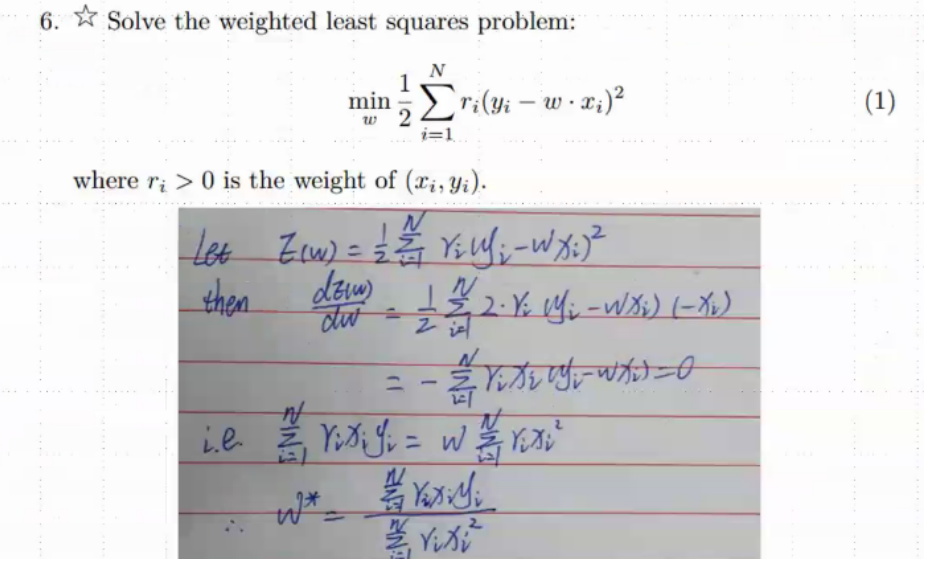 6. ☆ Solve the weighted least squares problem:
min_w 1/2 ∑_{i=1}^{N} r_i(y_i − w · x_i)^2 (1)
where r_i > 0 is the weight of (x_i, y_i).
Let E(w) = 1/2 ∑_{i=1}^{N} r_i(y_i − wx_i)^2
then dE(w)/dw = 1/2 ∑_{i=1}^{N} 2·r_i (y_i − wx_i) (−x_i)
= − ∑_{i=1}^{N} r_i x_i (y_i − wx_i) = 0
i.e ∑_{i=1}^{N} r_i x_i y_i = w ∑_{i=1}^{N} r_i x_i^2
∴ w* = ∑_{i=1}^{N} r_i x_i y_i / ∑_{i=1}^{N} r_i x_i^2